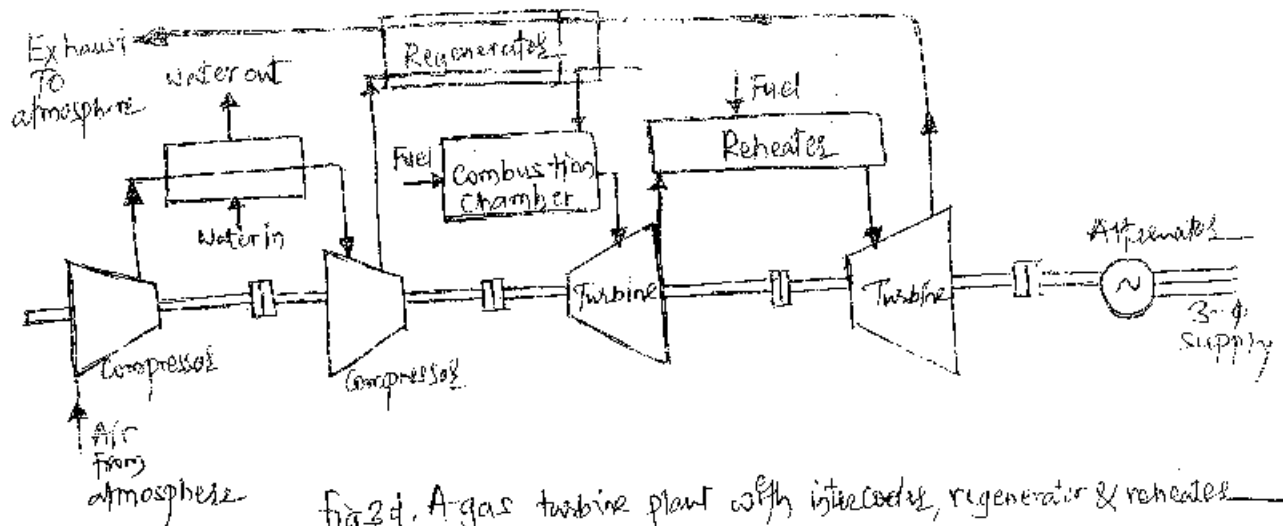 Exhaust
To
atmosphere
Water out
Regenerator
Fuel
Reheater
Fuel
Combustion
Chamber
Water in
Compressor
Compressor
Turbine
Turbine
Alternator
3-ϕ
supply
Air
from
atmosphere
A gas turbine plant with intercooler, regenerator & reheater